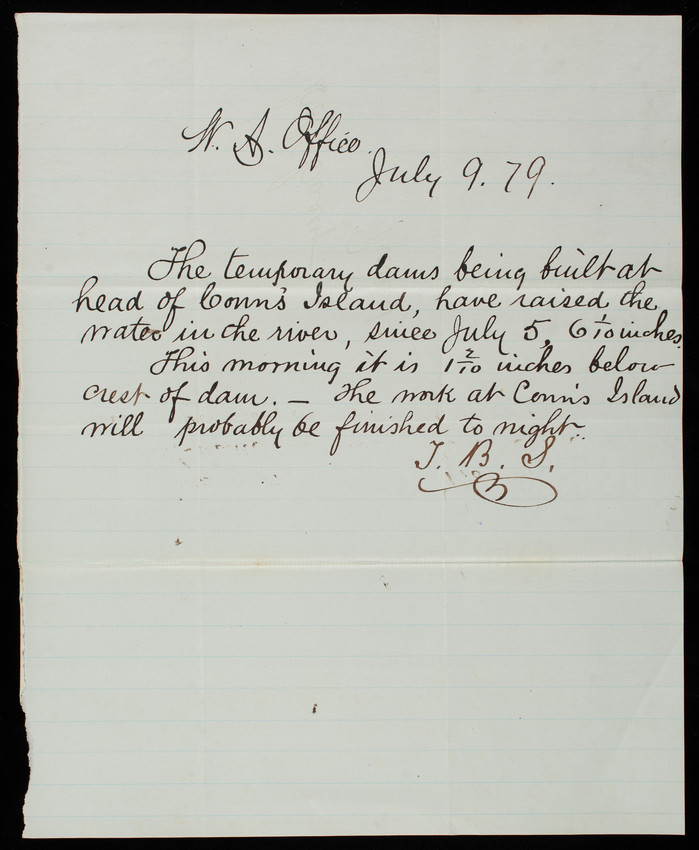 W. A. Office.
July 9. 79.
The temporary dams being built at
head of Conn's Island, have raised the
water in the river, since July 5, 6 1/10 inches.
This morning it is 1 2/10 inches below
crest of dam. — The work at Conn's Island
will probably be finished to night.
T. B. S.